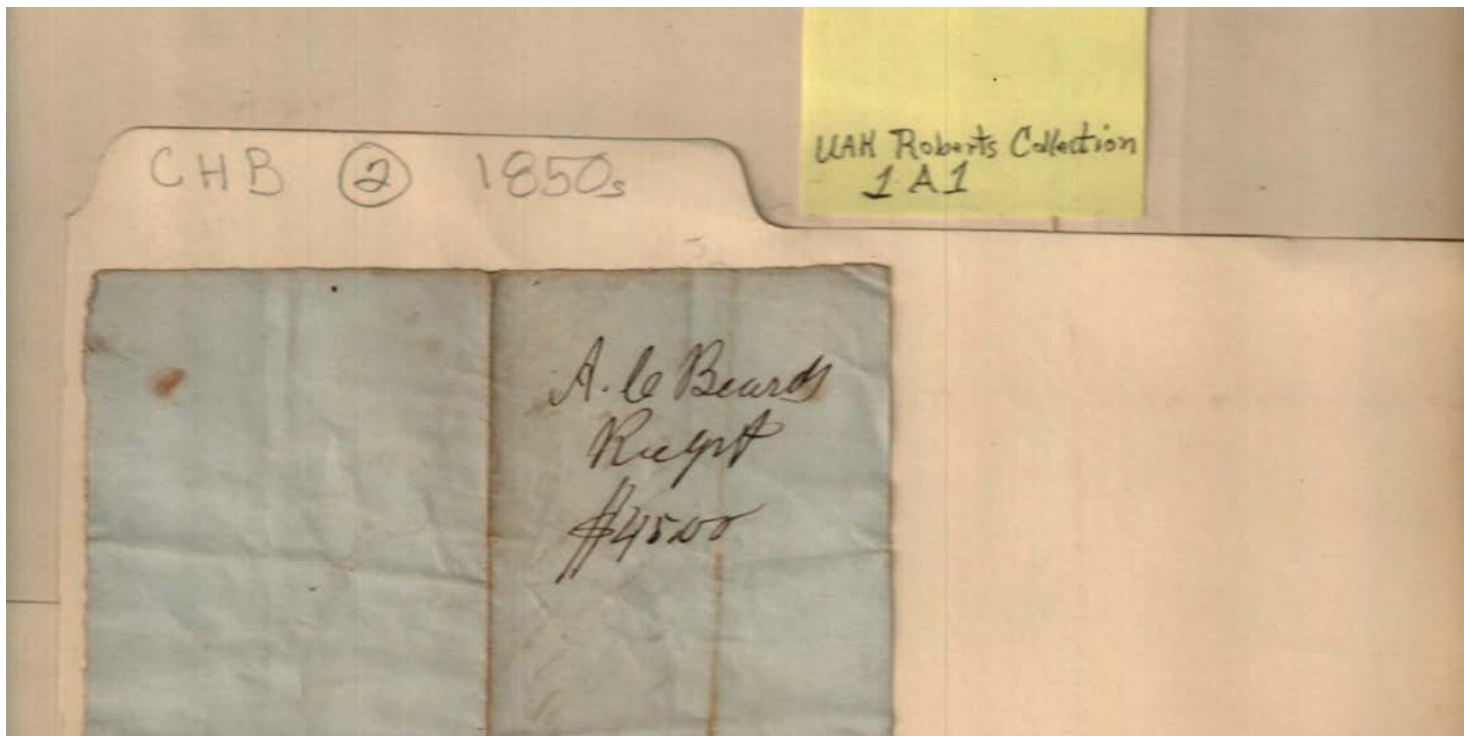 CHB ② 1850s
UAH Roberts Collection
1 A 1
A. C Beards
Recpt
$4500